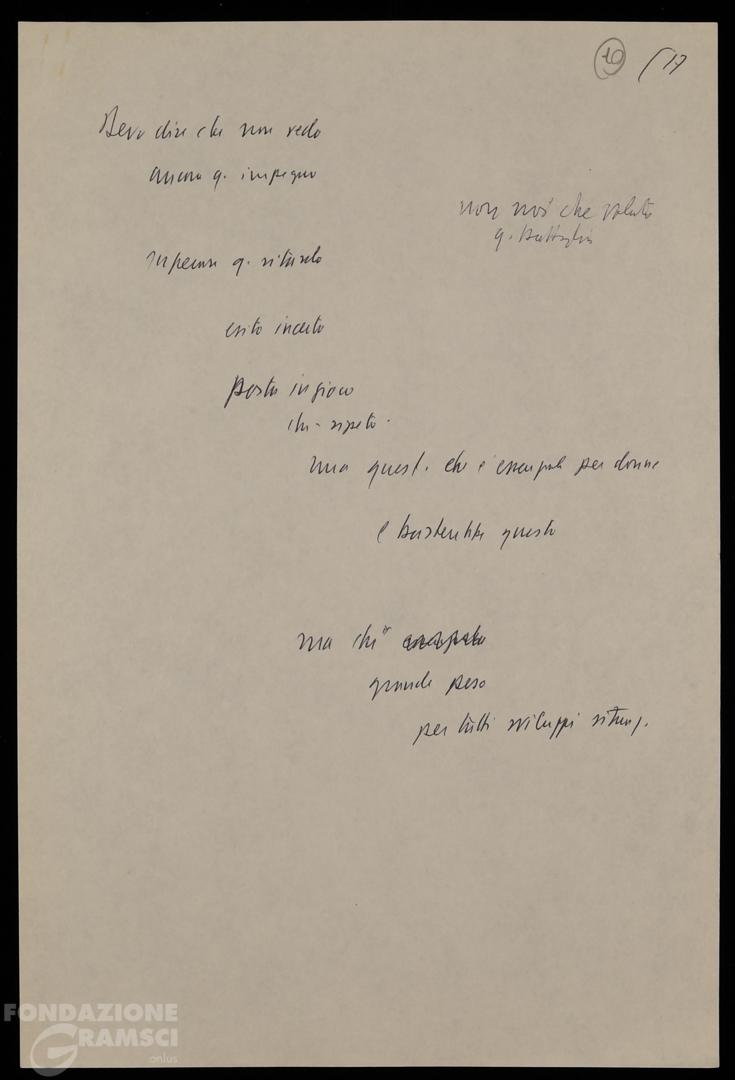 10 / 17
Devo dire che non vedo
ancora q. impegno
non noi che voluto
q. battaglia
superare q. ritardo
esito incerto
posta in gioco
che - ripeto -
una quest. che è essenziale per donne
e basterebbe questo
ma chi
grande peso
per tutti sviluppi situaz.
FONDAZIONE
GRAMSCI
onlus